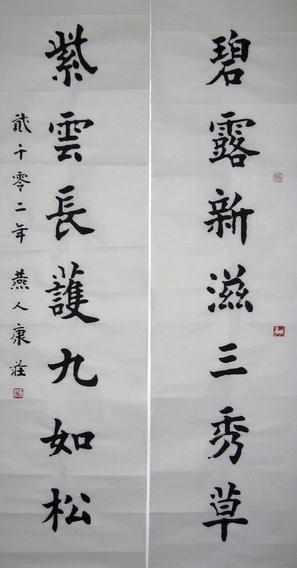 碧露新滋三秀草
紫雲長護九如松
貮千零二年 燕人康莊